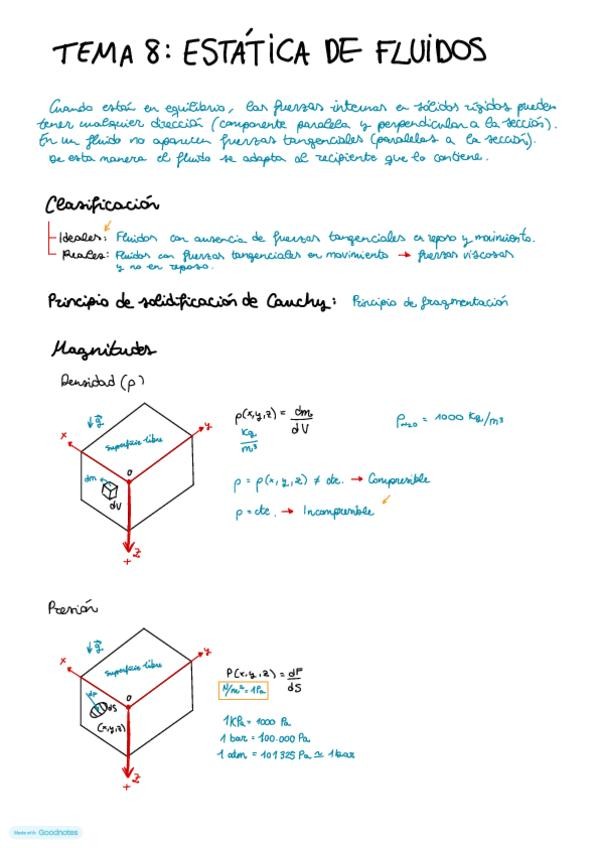 TEMA 8: ESTÁTICA DE FLUIDOS
Cuando están en equilibrio, las fuerzas internas en sólidos rígidos pueden
tener cualquier dirección (componente paralela y perpendicular a la sección).
En un fluido no aparecen fuerzas tangenciales (paralelas a la sección).
De esta manera el fluido se adapta al recipiente que lo contiene.
Clasificación
Ideales: Fluidos con ausencia de fuerzas tangenciales en reposo y movimiento.
Reales: Fluidos con fuerzas tangenciales en movimiento → fuerzas viscosas
y no en reposo.
Principio de solidificación de Cauchy: Principio de fragmentación
Magnitudes
Densidad (ρ)
↓g
x
y
Superficie libre
O
dm
dV
z
+
ρ(x,y,z) = dm/dV
Kg/m³
ρH2O = 1000 Kg/m³
ρ = ρ(x, y, z) ≠ cte. → Compresible
ρ = cte. → Incompresible
Presión
↓g
x
y
Superficie libre
O
dF
dS
(x,y,z)
z
+
P(x,y,z) = dF/dS
N/m² = 1Pa
1KPa = 1000 Pa
1 bar = 100.000 Pa
1 atm = 101325 Pa ≃ 1bar
Made with Goodnotes